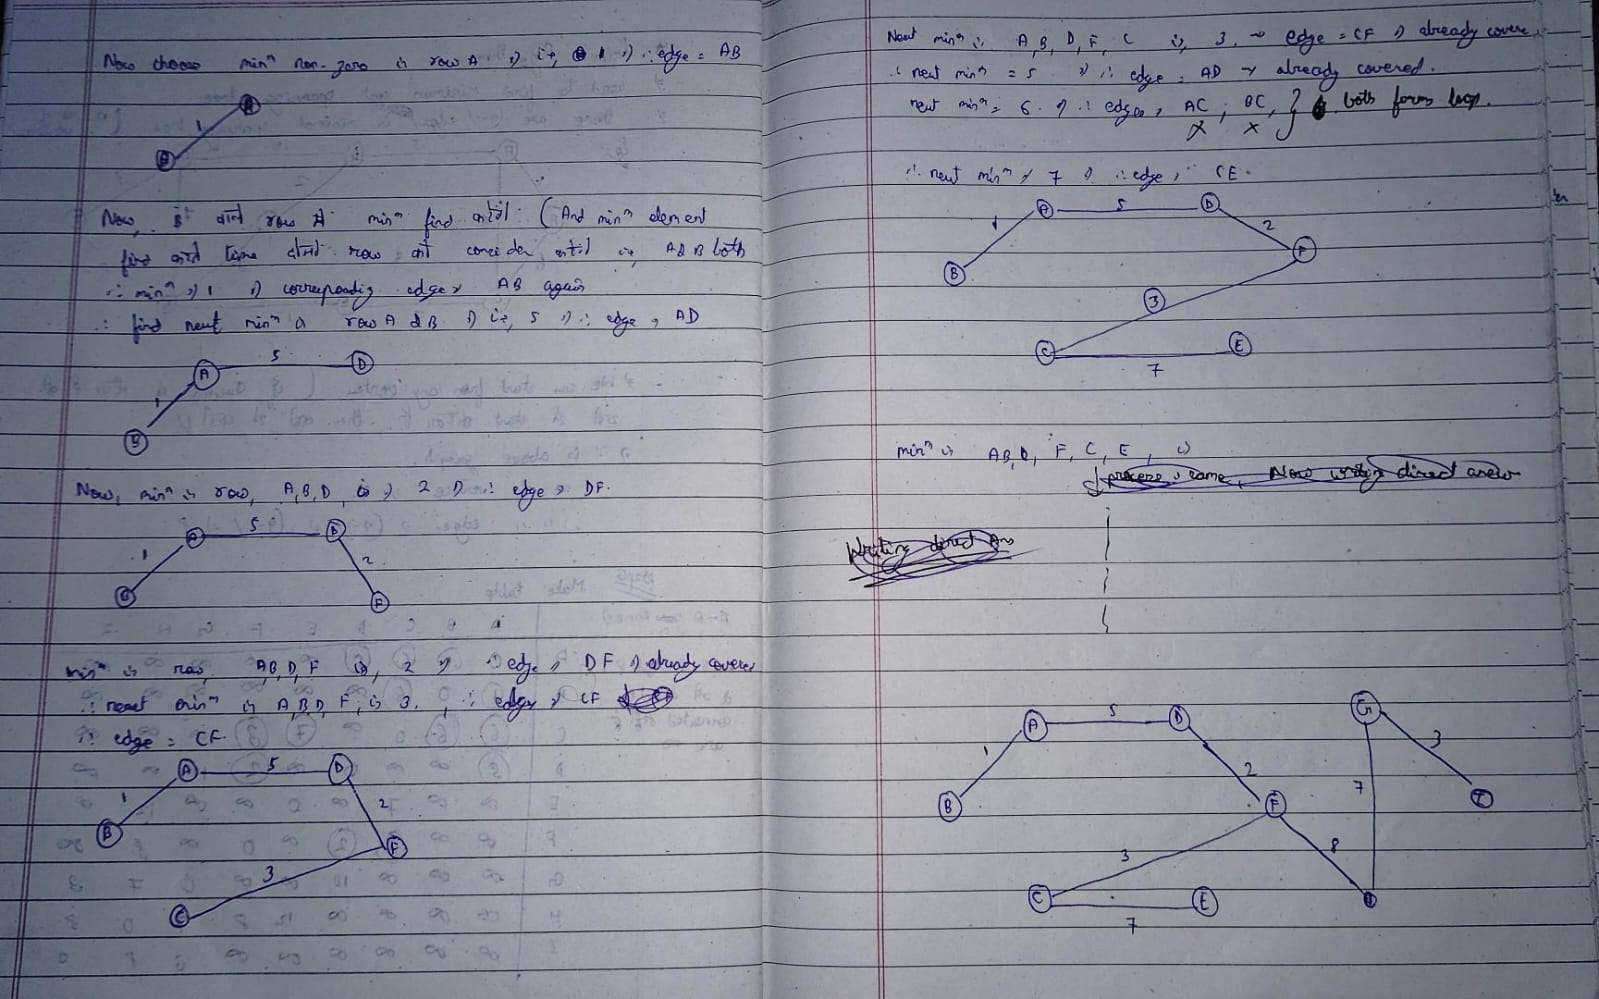 Now choose minᵐ non-zero in row A ⇒ i.e, 1 ⇒ ∴ edge = AB
1
B
Now, B वाले row से minᵐ find करेंगे. (And minᵐ element
find करते time दोनों row को consider करेंगे i.e, A & B both
∴ minᵐ ⇒ 1 ⇒ corresponding edge ⇒ AB again
∴ find next minᵐ in row A & B ⇒ i.e, 5 ⇒ ∴ edge ⇒ AD
A 5 D
1
B
Now, minᵐ in row, A,B,D is ⇒ 2 ⇒ ∴ edge ⇒ DF.
A 5 D
1 2
B F
minᵐ in row, A,B,D,F is, 2 ⇒ ∴ edge ⇒ DF ⇒ already covered
∴ next minᵐ in A,B,D,F, is 3. ∴ edge ⇒ CF
∴ edge = CF.
A 5 D
1 2
B F
3
C
Next minᵐ in A,B,D,F,C is, 3, → edge = CF ⇒ already covere
∴ next minᵐ = 5 ⇒ ∴ edge = AD → already covered.
next minᵐ = 6. ⇒ ∴ edges, AC, BC, } both forms loop.
x x
∴ next minᵐ ⇒ 7 ⇒ ∴ edge, CE.
A 5 D
1 2
B F
3
C E
7
minᵐ in A,B,D, F, C, E, is
process is same, Now writing direct answ
Writing direct Ans
A 5 D G
1 2 7 3
B F I
3 8
C E
7